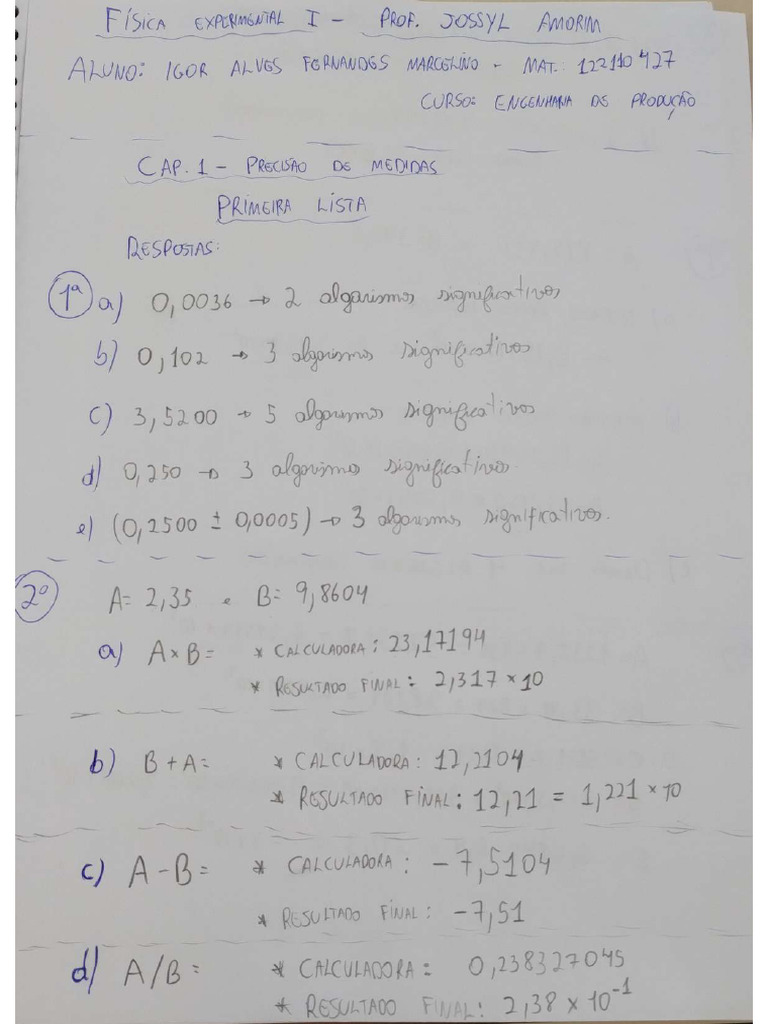 FÍSICA EXPERIMENTAL I - PROF. JOSSYL AMORIM
ALUNO: IGOR ALVES FERNANDES MARCELINO - MAT.: 122110427
CURSO: ENGENHARIA DE PRODUÇÃO
CAP. 1 - PRECISÃO DE MEDIDAS
PRIMEIRA LISTA
RESPOSTAS:
1ª a) 0,0036 → 2 algarismos significativos
b) 0,102 → 3 algarismos significativos
c) 3,5200 → 5 algarismos significativos
d) 0,250 → 3 algarismos significativos.
e) (0,2500 ± 0,0005) → 3 algarismos significativos.
2º A= 2,35 e B= 9,8604
a) A×B= * CALCULADORA: 23,17194
* RESULTADO FINAL: 2,317 × 10
b) B+A= * CALCULADORA: 12,2104
* RESULTADO FINAL: 12,21 = 1,221 × 10
c) A-B= * CALCULADORA: -7,5104
* RESULTADO FINAL: -7,51
d) A/B= * CALCULADORA: 0,238327045
* RESULTADO FINAL: 2,38 × 10⁻¹